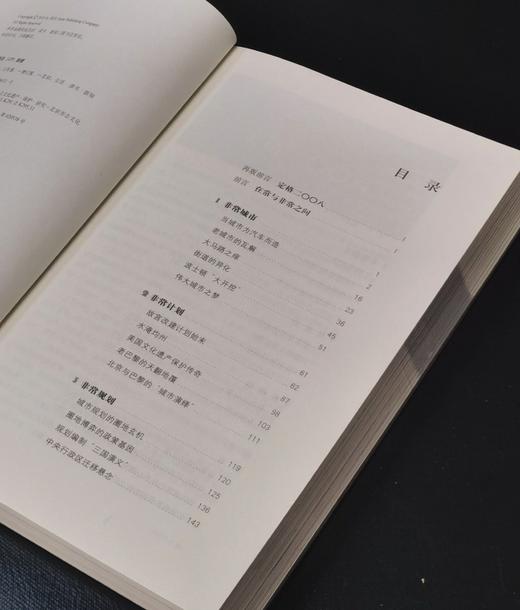 All Rights Reserved
目 录
再版前言 定格二〇〇八
前言 在常与非常之间
1 非常城市 1
当城市为汽车而造 2
老城市的瓦解 16
大马路之痒 23
街道的异化 36
波士顿“大开挖” 45
伟大城市之梦 51
非常计划 61
故宫改建计划始末 62
水淹均州 87
美国文化遗产保护传奇 98
老巴黎的天翻地覆 103
北京与巴黎的“城市演绎” 111
非常规划 119
城市规划的圈地玄机 120
圈地博弈的政策基因 125
规划编制“三国演义” 136
中央行政区迁移悬念 143